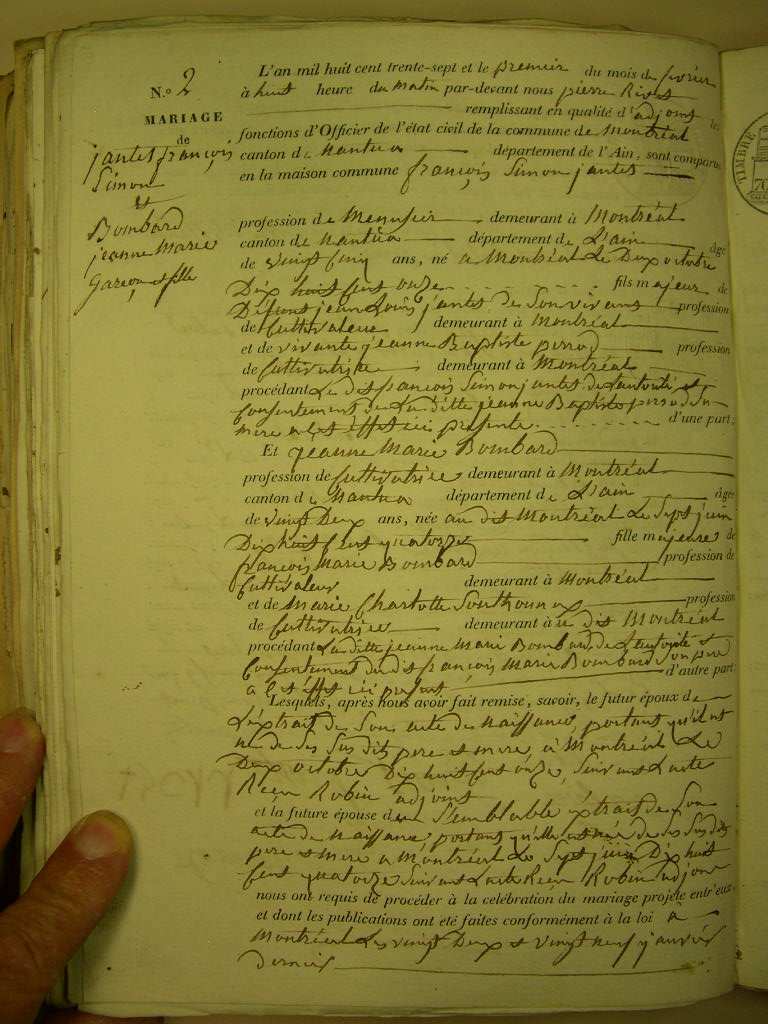 N.o 2
MARIAGE
de
jantet françois
Simon
et
Bombard
jeanne Marie
Garçon et fille
L'an mil huit cent trente-sept et le premier du mois de fevrier
à huit heure du matin par-devant nous pierre Rivet
remplissant en qualité d'adjoint les
fonctions d'Officier de l'état civil de la commune de Montréal
canton de Nantua département de l'Ain, sont comparus
en la maison commune françois Simon jantet
profession de Menusier demeurant à Montréal
canton de Nantua département de L'ain âgé
de vingt cinq ans, né a Montréal Le Deux octobre
Dix huit cent onze fils majeur de
Défunt jean Louis jantet de Son vivant profession
de Cultivateur demeurant à Montréal
et de vivante jeanne Baptiste perrod profession
de Cultivatrice demeurant à Montréal
procédant Le dit françois Simon jantet de L'autorité et
Consentement de La ditte jeanne Baptiste perrod Sa
mere a Cet Effet ici présente d'une part;
Et jeanne Marie Bombard
profession de Cultivatrice demeurant à Montréal
canton de Nantua département de L'ain âgée
de vingt Deux ans, née au dit Montréal Le Sept juin
Dix huit Cent quatorze fille majeure de
françois Marie Bombard profession de
Cultivateur demeurant à Montréal
et de Marie Charlotte Southonnax profession
de Cultivatrice demeurant à u dit Montréal
procédant La ditte jeanne Marie Bombard de L'autorité et
Consentement du dit françois Marie Bombard Son pere
a Cet Effet ici présent d'autre part
Lesquels, après nous avoir fait remise, savoir, le futur époux de
L'éxtrait de Son acte de Naissance, portant qu'il est
né de ses Susdits pere et mere, à Montréal Le
Deux octobre Dix huit Cent onze, Suivant L'acte
Reçu Robin adjoint
et la future épouse d'un Semblable éxtrait de Son
acte de Naissance portant qu'elle est née de ses Susdits
pere et mere a Montréal Le Sept juin Dix huit
Cent quatorze Suivant L'acte Reçu Robin adjoint
nous ont requis de procéder à la célébration du mariage projeté entr'eux
et dont les publications ont été faites conformément à la loi à
Montréal Les vingt Deux et vingt neuf janvier
dernier
TIMBRE